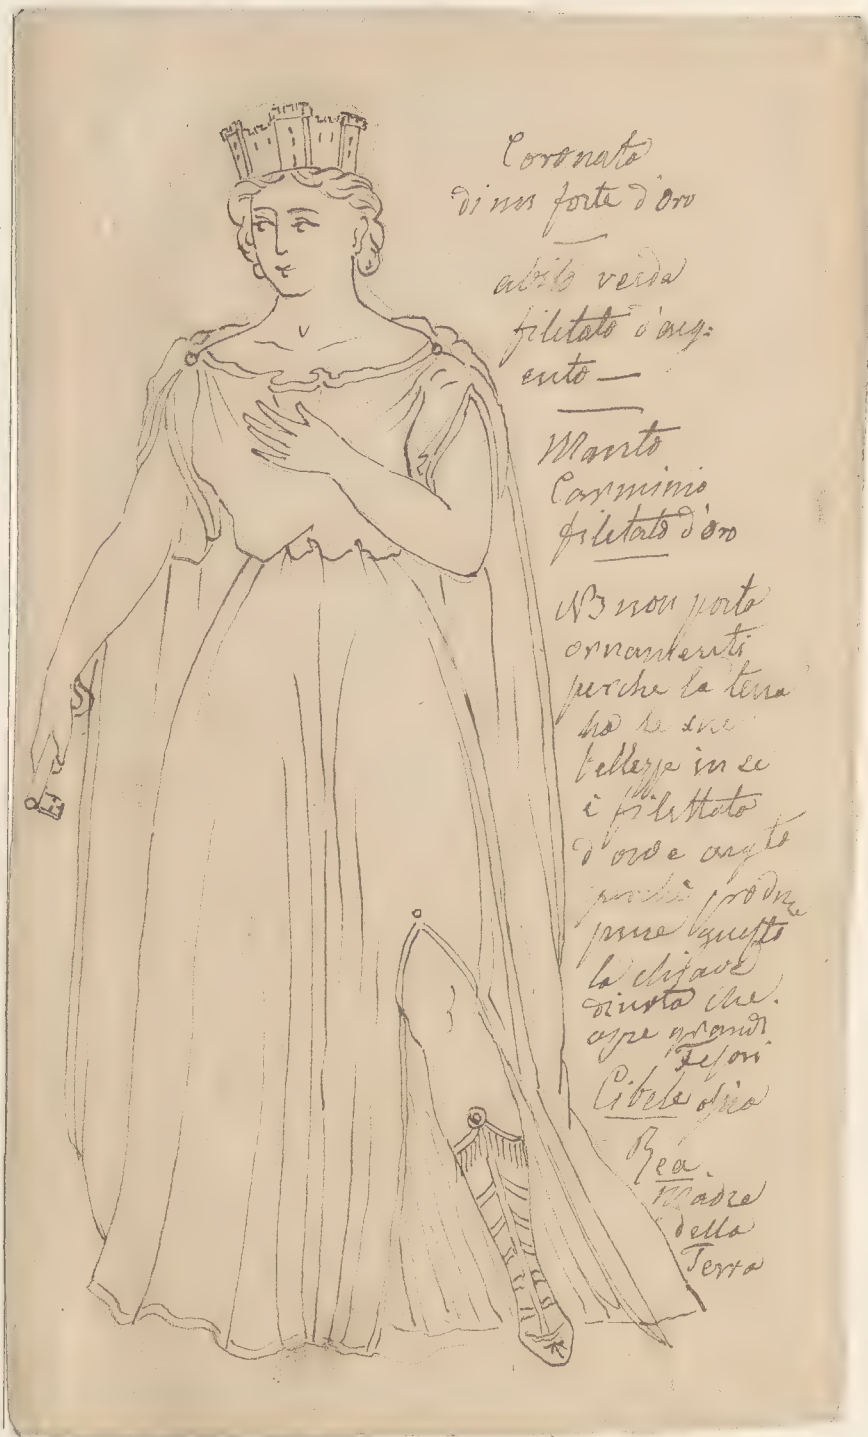 Coronato
di un forte d'oro
abito verde
filetato d'arg:
ento —
Manto
Carminio
filetato d'oro
NB non porta
ornamenti
perche la terra
ha le sue
bellezze in se
è filettato
d'oro e argto
perchè produ
pure questo
la chiave
dinota che
apre grandi
Tesori
Cibele ossia
Rea.
Madre
della
Terra